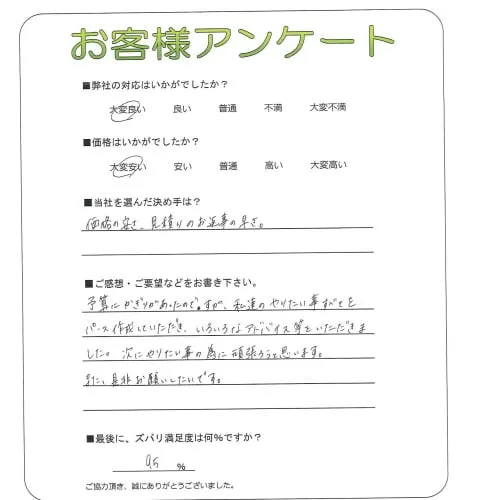 お客様アンケート
■弊社の対応はいかがでしたか？
大変良い 良い 普通 不満 大変不満
■価格はいかがでしたか？
大変安い 安い 普通 高い 大変高い
■当社を選んだ決め手は？
価格の安さ、見積りのお返事の早さ。
■ご感想・ご要望などをお書き下さい。
予算にかぎりがあったのですが、私達のやりたい事すべてを
パース作成していただき、いろいろなアドバイス等をいただきま
した。次にやりたい事の為に頑張ろうと思います。
また、是非お願いしたいです。
■最後に、ズバリ満足度は何％ですか？
95 %
ご協力頂き、誠にありがとうございました。